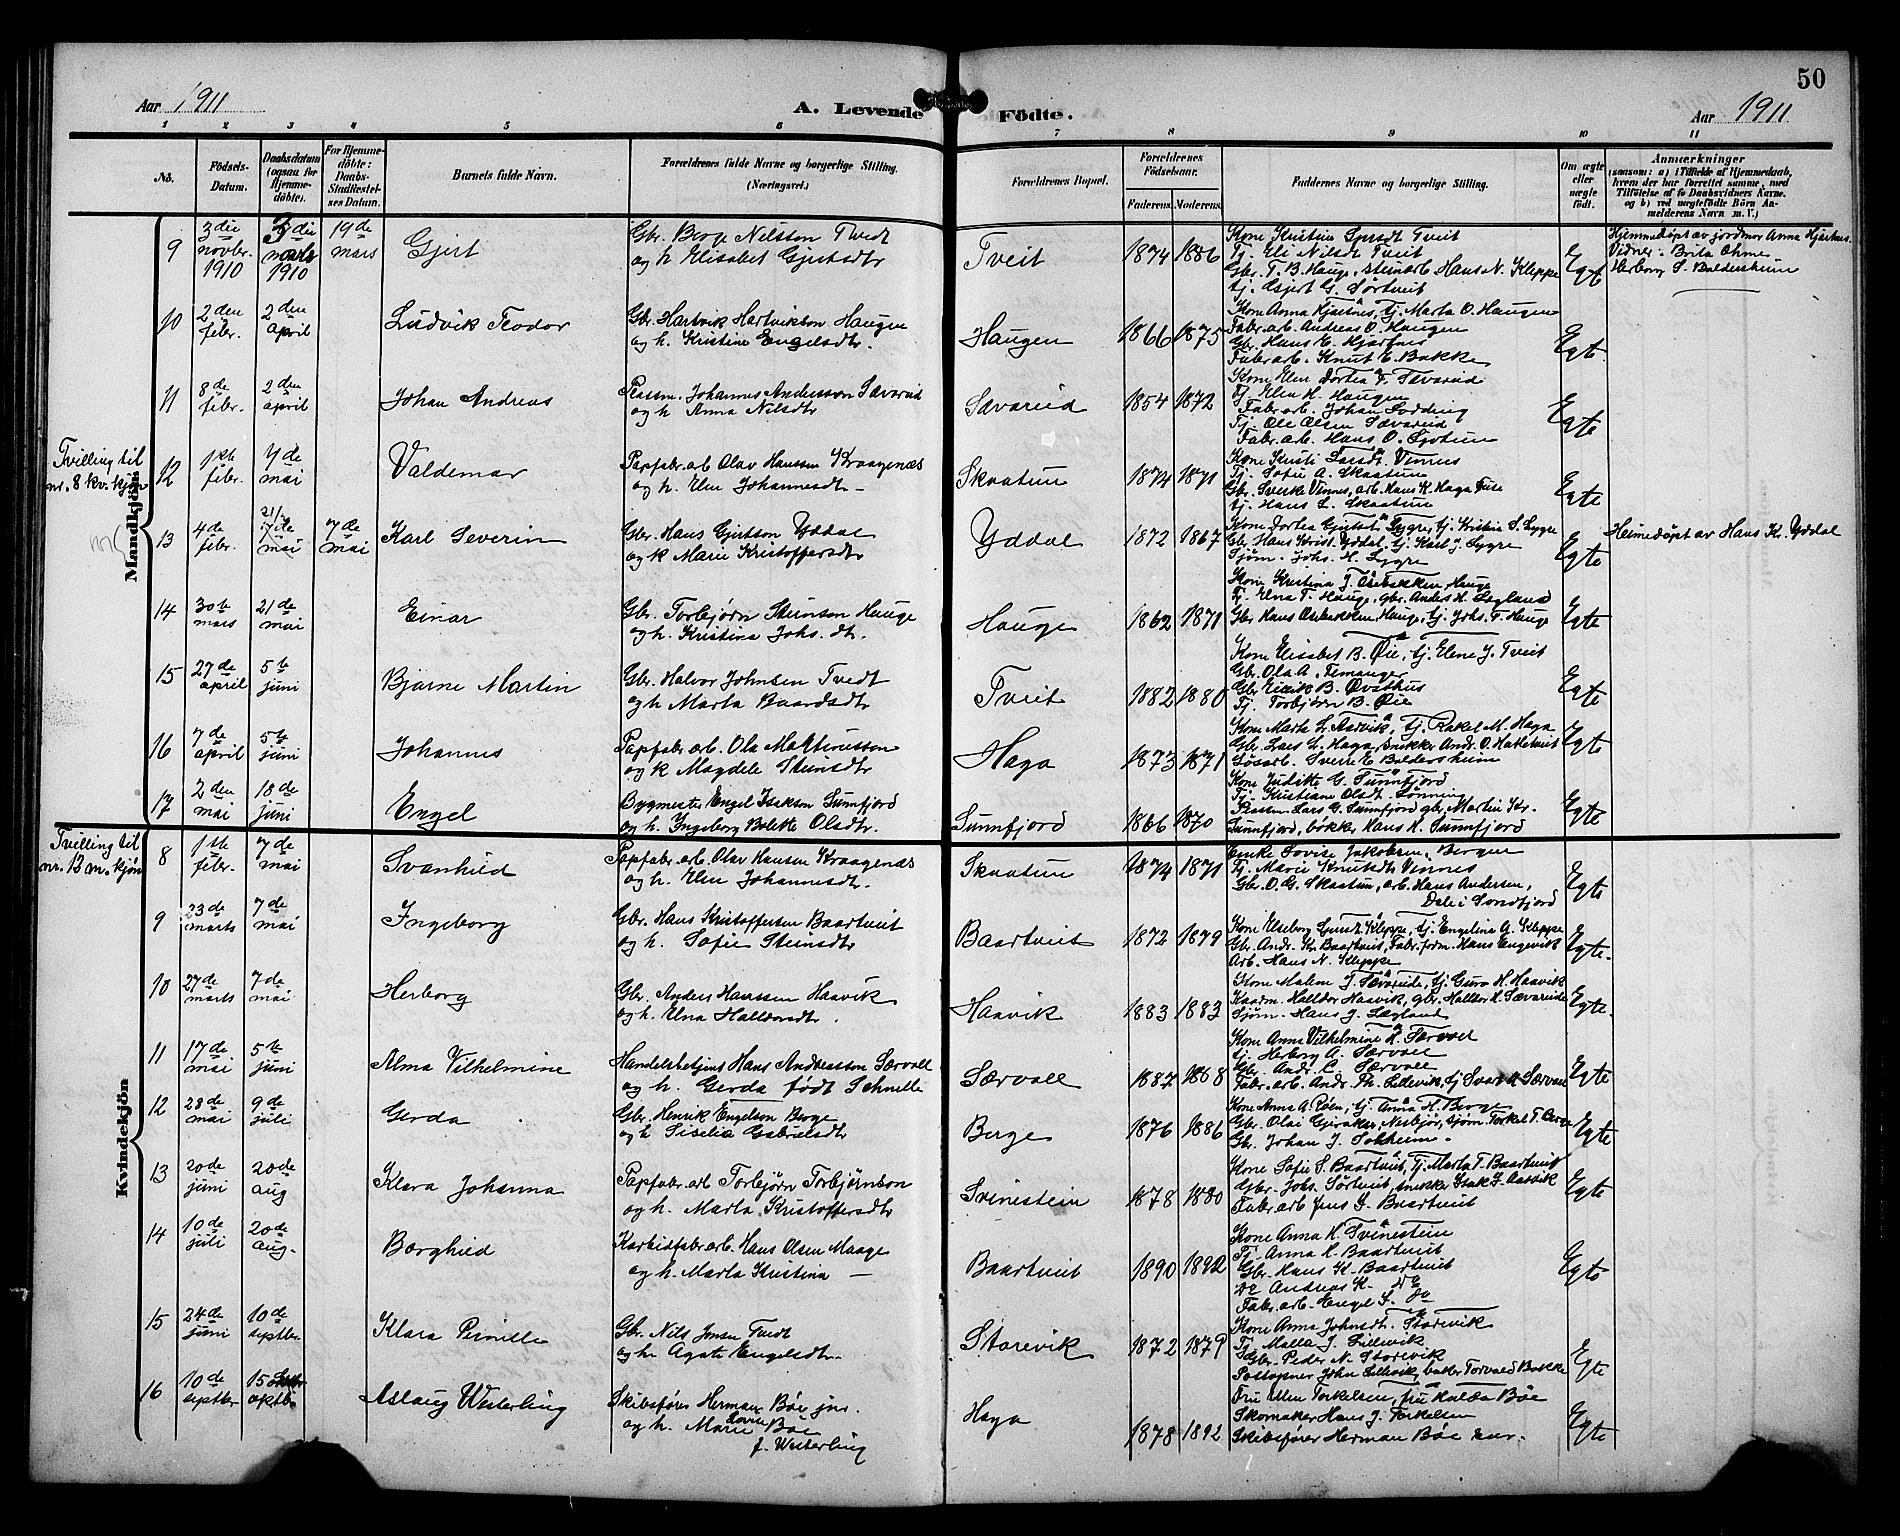 50
Aar 1911
A. Levende Födte.
Aar 1911
1 2 3 4 5 6 7 8 9 10 11
No.
Födsels-Datum.
Daabsdatum (ogsaa for Hjemmedöbte).
For Hjemmedöbte: Daabs-Stadfæstelses Datum.
Barnets fulde Navn.
Forældrenes fulde Navne og borgerlige Stilling.
(Næringsvei.)
Forældrenes Bopæl.
Forældrenes Födselsaar.
Faderens. Moderens.
Faddernes Navne og borgerlige Stilling.
Om ægte eller uægte födt.
Anmærkninger
(saasom: a) i Tilfælde af Hjemmedaab, hvem der har forrettet samme, med Tilföielse af to Daabsvidners Navne. og b) ved uægtefödte Börn Anmelderens Navn m. V.)
Mandkjön
9 3die novbr. 1910 3die 1910 19de mars Gjert
Gbr. Berge Nilsson Tvedt
og h. Elisabet Gjertsdtr
Tveit 1874 1886
Tj. Eli Nilsdt Tveit
Gbr. T. B. Hauge, steinarb Hans N. Kleppe
Egt
Hjemmedøpt av jordmor Anna Hjartnes.
Vidner: Brita Ohme
Herborg S. Baldersheim
10 2den febr. 2den april Ludvik Teodor
Gbr. Hartvik Hartvikson Haugen
og h. Kristine Engelsdtr
Haugen 1866 1875
Kone Anna Hjartnes, tj. Marta O. Haugen
Fabr. arb. Andreas O. Haugen
Gbr. Hans E. Hjartnes
Fabr. arb. Knut E. Bakke
Egte
11 8de febr. 2den april Johan Andreas
Plassm. Johannes Andersson Sævareid
og h Anna Nilsdtr
Sævareid 1854 1872
Kone Elen Dortea F. Sævareid
Tj. Elen H. Haugen
Fabr. arb. Johan Lodding
Tj. Ole Olsen Sævareid
Fabr. arb. Hans O.
Egte
Tvilling til nr. 8 kv. kjøn
12 1ste febr. 7de mai Valdemar
Papfabr. arb Olav Hanssen Kraagenæs
og h. Elen Johannesdt
Skaatun 1874 1871
Kone Kristi Larsdt. Vinnes
Tj. Sofie A. Skaatun
Gbr. Sverke Vinnes, arb. Hans K. Haga Fuse
tj. Hans L. Skaatun
Egte
13 4de febr. 21/5 7de mai 7de mai Karl Severin
Gbr. Hans Gjertson Yddal
og k Marie Kristoffersdtr
Yddal 1872 1867
Kone Dortea Gjertsdt Lygre, tj. Kristina S. Lygre
Gbr. Hans Krist. Yddal, tj. Karl J. Lygre
Sjøm. Johs. H. Lygre
Egte
Heimedøpt av Hans Kr. Yddal
14 30te mars 21de mai Einar
Gbr. Torbjørn Steinson Hauge
og h. Kristina Johs. dt.
Hauge 1862 1871
Kone Kristina J. Osebakken, Hauge
Tj. Elna T. Hauge, gbr. Anders H. Lægland
Gbr Hans Osebakken, Hauge, tj. Johs. T. Hauge
Egte
15 27de april 5te juni Bjarne Martin
Gbr. Halvor Johnsen Tvedt
og h Marta Baardsdtr
Tveit 1882 1880
Kone Elisabet B. Øie, tj. Elene J. Tveit
Gbr. Ola A. Femanger
Gbr Eirik B. Øvsthus
Tj. Torbjørn B. Øie
Egte
16 7de april 5te juni Johannes
Papfabr. arb. Ola Martinusson
og k Magdele Steinsdtr
Haga 1873 1871
Kone Marta L. Aarvik, tj. Rakel M. Haga
Gbr. Lars L. Haga, snikker Andr. O. Hattelteit
Løsarb. Sverre E. Baldersheim
Egte
17 2den mai 18de juni Engel
Bygmester Engel Isakson Sunnfjord
og h. Ingeborg Bolette Olsdtr.
Sunnfjord 1866 1870
Kone Judite G. Sunnfjord
Tj. Kristiane Olsdt. Tønning
Plassm. Lars G. Sunnfjord gbr. Martin Kr.
Sunnfjord, bøkker Hans K. Sunnfjord
Egte
Kvindekjön
Tvilling til nr. 12 m. kjøn
8 1ste febr. 7de mai Svanhild
Papfabr. arb. Olav Hansen Kraagenæs
og h. Elen Johannesdtr.
Skaatun 1874 1871
Enke Lovise Jakobsen, Bergen
Tj. Marie Knutsdt Vinnes
Gbr. O. G. Skaatun, arb. Hans Andersen,
Dale i Søndfjord
Egte
9 23de marts 7de mai Ingeborg
Gbr. Hans Kristoffersen Baartveit
og h. Sofie Steinsdtr
Baartveit 1872 1879
Kone Elseborg Kleppe, tj. Engelina A. Kleppe
Gbr. Andr. Kr. Baartveit, Fabr. form. Hans Engevik
Arb. Hans N. Kleppe
Egte.
10 27de marts 7de mai Herborg
Gbr. Anders Hanssen Haavik
og h. Elna Halldorsdtr.
Haavik 1883 1883
Kone Malene J. Sævareide, tj Guro H. Haavik
Kaarm. Halldor Haavik, gbr. Halldor H. Sævareide
Sjøm. Hans J. Lægland
Egte.
11 17de mai 5te juni Alma Vilhelmine
Handelsbetjent Hans Andreassen Særvoll
og h. Gerda født Schnelle
Særvoll 1887 1868
Kone Anna Vilhelmine H. Særvoll
tj. Herborg A. Særvoll
Gbr. Andr. L. Særvoll
Fabr. arb. Andr. Th. Lillevik, tj Ivar H Særvoll
Egte
12 28de mai 9de juli Gerda
Gbr. Henrik Engelson Berge
og h Siselia Gabrielsdtr
Berge 1876 1886
Kone Anna A. Røen, tj. Anna H. Berge
Gbr. Olai Gjeraker, Nesbjør, sjøm. Torkel T. Berge
Gb. Johan J. Solheim.
Egte
13 20de juni 20de aug Klara Johanna
Papfabr. arb Torbjørn Torbjørnson
og h. Marta Kristoffersdtr
Svinestein 1878 1880
Kone Sofie S. Baartveit, Tj. Marta T. Baartveit
Gbr. Johs. Sørtveit, snekker Isak I. Aarvik
Fabr. arb Jens S. Baartveit
Egte
14 10de juli 20de aug. Borghild
Karbidfabr. arb. Hans Olsen Maage
og h. Marta Kristina
Baartveit 1890 1892
Kone Anna K. Svinestein
Tj. Anna K. Baartveit
Gbr. Hans K. Baartveit
Do Andreas K. Do
Fabr. arb. Engel S. Do
Egte
15 24de juni 10de septbr Klara Pernille
Gbr. Nils Jonsen Tvedt
og h. Agate Engelsdtr.
Storevik 1872 1879
Kone Anna Johnsdt. Storevik
Tj. Malla J. Lillevik
Gbr. Peder N. Storevik
Postopner John Lillevik, baker Torvald Bakke
Egte
16 10de septbr 15 Aslaug Westerling
Skibsfører Herman Bøe jnr.
og h. Marie Lovise Bøe
f. Westerling
Haga 1878 1892
Fru Ellen Torkelsen, fru Hulda Bøe
Skomaker Hans J. Torkelsen
Skibsfører Herman Bøe senr.
Egte